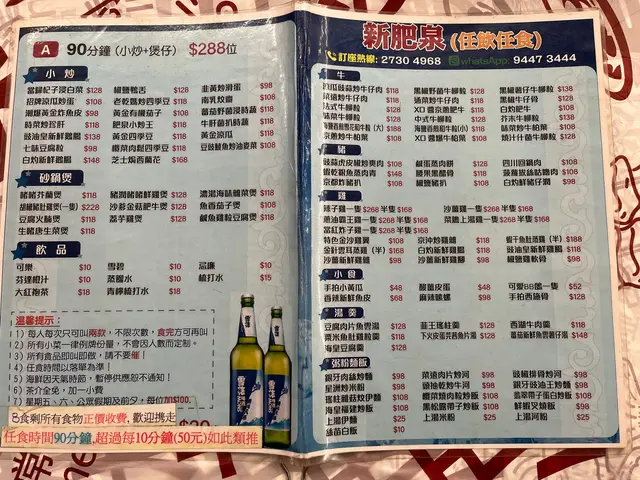 A 90分鐘 (小炒+煲仔) $288位
小炒
當歸杞子浸白菜 $128
椒鹽鴨舌 $128
韭黃炒滑蛋 $98
招牌涼瓜炒蛋 $108
老乾媽炒四季豆 $118
南乳炆齋 $108
潮爆黃金炸魚皮 $98
黃金有條茄子 $108
蕃茄炒野蔬時蔬 $118
時菜炒珍肝 $118
肥泉小炒王 $118
牛肝菌扒時蔬 $118
豉油皇新鮮鵝腸 $138
黃金四季豆 $118
黃金涼瓜 $118
七味豆腐粒 $98
欖菜肉鬆四季豆 $118
豆豉鯪魚炒油麥菜 $108
白灼新鮮鵝腸 $148
芝士焗西蘭花 $168
砂鍋煲
啫啫芥蘭煲 $118
豬潤啫啫鮮雞煲 $128
濃湯海味雜菜煲 $118
胡椒豬肚雞煲(一隻) $228
沙爹金菇肥牛煲 $128
魚香茄子煲 $108
豆腐火腩煲 $118
荔芋雞煲 $128
鹹魚雞粒豆腐煲 $118
生啫唐生菜煲 $118
飲品
可樂 $10
雪碧 $10
忌廉 $10
芬達橙汁 $10
蒸餾水 $10
梳打水 $15
大紅袍茶 $18
青檸梳打水 $18
溫馨提示：
1) 每人每次只可叫兩款，不限次數，食完方可再叫
2) 所有小菜一律例牌份量，不會因人數而定制。
3) 所有食品即叫即做，請不要催！
4) 任食時間以落單為準！
5) 海鮮因天氣時節，暫停供應恕不通知！
6) 茶介全免，加一小費
7) 星期五、六、公眾假期及前夕，每位加$100.
吃剩所有食物正價收費，歡迎攜走
任食時間90分鐘，超過每10分鐘(50元)如此類推
新肥泉(任飲任食)
訂座熱線: 2730 4968 whatsApp: 9447 3444
牛
涼瓜豉蒜炒牛仔肉 $118
黑椒野菌牛柳粒 $128
黑椒薯仔牛柳粒 $138
菜遠炒牛仔肉 $118
法式牛柳粒 $128
XO醬京蔥肥牛 $118
白灼肥牛 $108
味菜牛柳粒 $128
中式牛柳粒 $128
芥末牛柳粒 $138
京蔥炒牛柏葉 $108
XD醬爆牛柏葉 $108
燒汁什菌牛柳粒 $128
豬
鹹蛋蒸肉餅 $128
四川回鍋肉 $108
蝦乾銀魚蒸肉青 $148
陳果黑醋骨 $118
菠蘿拔絲咕嚕肉 $108
京都炸豬扒 $108
椒鹽豬扒 $108
白灼鮮豬仔潤 $98
雞
辣子雞一隻 $268 半隻 $168
沙薑雞一隻 $268 半隻 $168
蔥油霸王雞一隻 $268 半隻 $168
菜膽上湯雞一隻 $268 半隻 $168
當紅炸子雞一隻 $268 半隻 $168
特色金沙雞翼 $108
京沖炒雞鵝 $118
蝦干魚肚蒸雞 (半) $188
金針雲耳蒸雞 (半) $168
白灼新鮮雞腸 $118
豉油皇新鮮雞腸 $118
沙薑新鮮雞腎 $98
沙薑新鮮雞腳 $98
椒鹽雞軟骨 $98
小食
手拍小黃瓜 $48
酸薑皮蛋 $48
可愛BB鴿一隻 $52
香辣新鮮魚皮 $68
麻辣螺螄 $128
手拍西施骨 $128
湯羹
豆腐肉片魚雲湯 $128
韭王瑤柱羹 $128
西湖牛肉羹 $118
粟米魚肚雞粒羹 $118
海皇豆腐羹 $128
粥粉麵飯
銀牙肉絲炒麵 $98
菜遠肉片炒河 $98
豉椒排骨炒河 $98
星洲炒米粉 $98
豉油乾炒牛河 $98
銀牙豉油王炒麵 $98
瑤柱雜菇炆伊麵 $108
欖菜燒肉粒炒飯 $108
翡翠帶子蛋白炒飯 $108
海皇福建炒飯 $108
黑松露帶子炒飯 $108
鮮蝦叉燒飯 $98
上湯伊麵 $25
上湯米粉 $25
上湯河粉 $25
絲苗白飯 $10